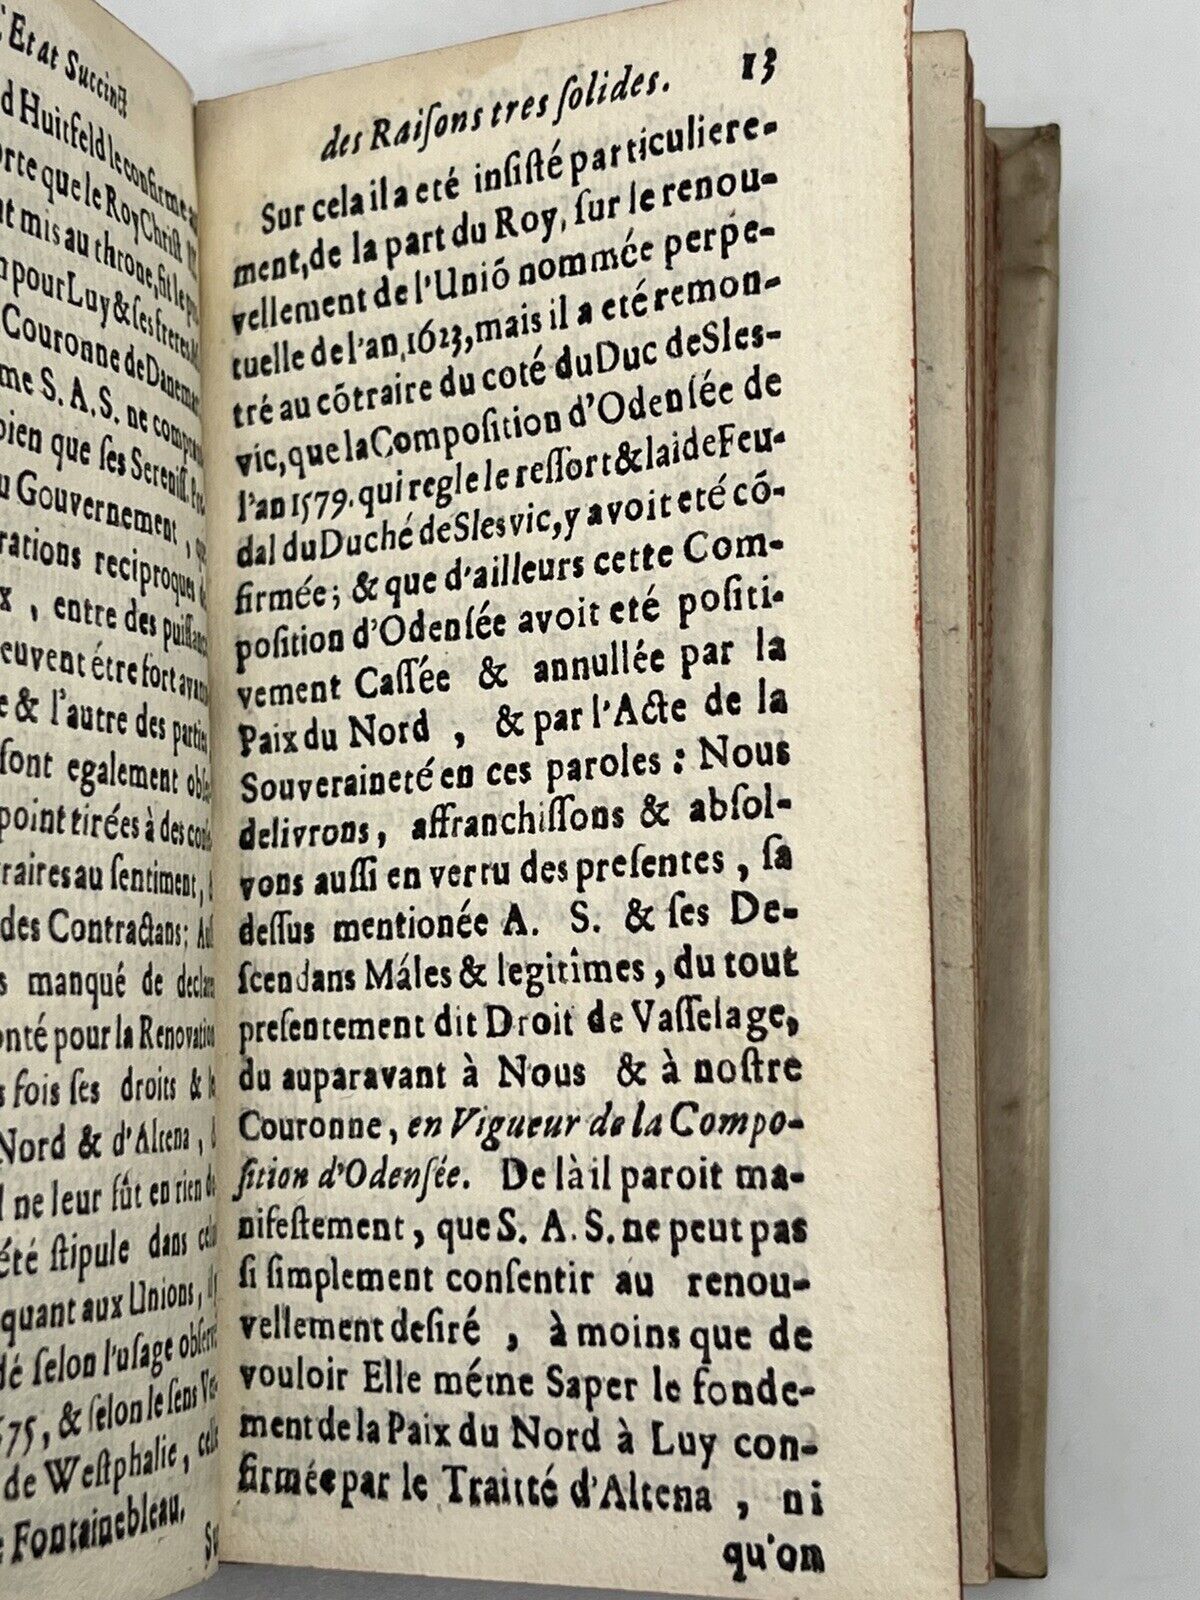 L'Etat Succinct
d Huitfeld le confirme
que le Roy Christ
mis au throne, fit le
pour Luy & ses freres
Couronne de
me S. A. S. ne
bien que ſes Sereniſſ.
Gouvernement,
rations reciproques
x, entre des
euvent étre fort
& l'autre des
ſont egalement
point tirées à des
raires au ſentiment,
des Contractans;
manqué de
pour la Renovation
fois ſes droits &
Nord & d'Altena,
ne leur fût en rien
été ſtipule dans
quant aux Unions,
ſelon l'uſage
675, & ſelon le ſens
de Weſtphalie,
Fontainebleau.
des Raiſons tres ſolides. 13
Sur cela il a eté inſiſté particuliere-
ment, de la part du Roy, ſur le renou-
vellement de l'Uniõ nommée perpe-
tuelle de l'an 1623, mais il a eté remon-
tré au cõtraire du coté du Duc de Sles-
vic, que la Compoſition d'Odenſée de
l'an 1579. qui regle le reſſort & la ide Feu-
dal du Duché de Slesvic, y avoit eté cõ-
firmée; & que d'ailleurs cette Com-
poſition d'Odenſée avoit eté poſiti-
vement Caſſée & annullée par la
Paix du Nord, & par l'Acte de la
Souveraineté en ces paroles: Nous
delivrons, affranchiſſons & abſol-
vons auſſi en vertu des preſentes, ſa
deſſus mentionée A. S. & ſes De-
ſcendans Máles & legitîmes, du tout
preſentement dit Droit de Vaſſelage,
du auparavant à Nous & à noſtre
Couronne, en Vigueur de la Compo-
ſition d'Odenſée. De là il paroit ma-
nifeſtement, que S. A. S. ne peut pas
ſi ſimplement conſentir au renou-
vellement deſiré, à moins que de
vouloir Elle méme Saper le fonde-
ment de la Paix du Nord à Luy con-
firmée par le Traitté d'Altena, ni
qu'on